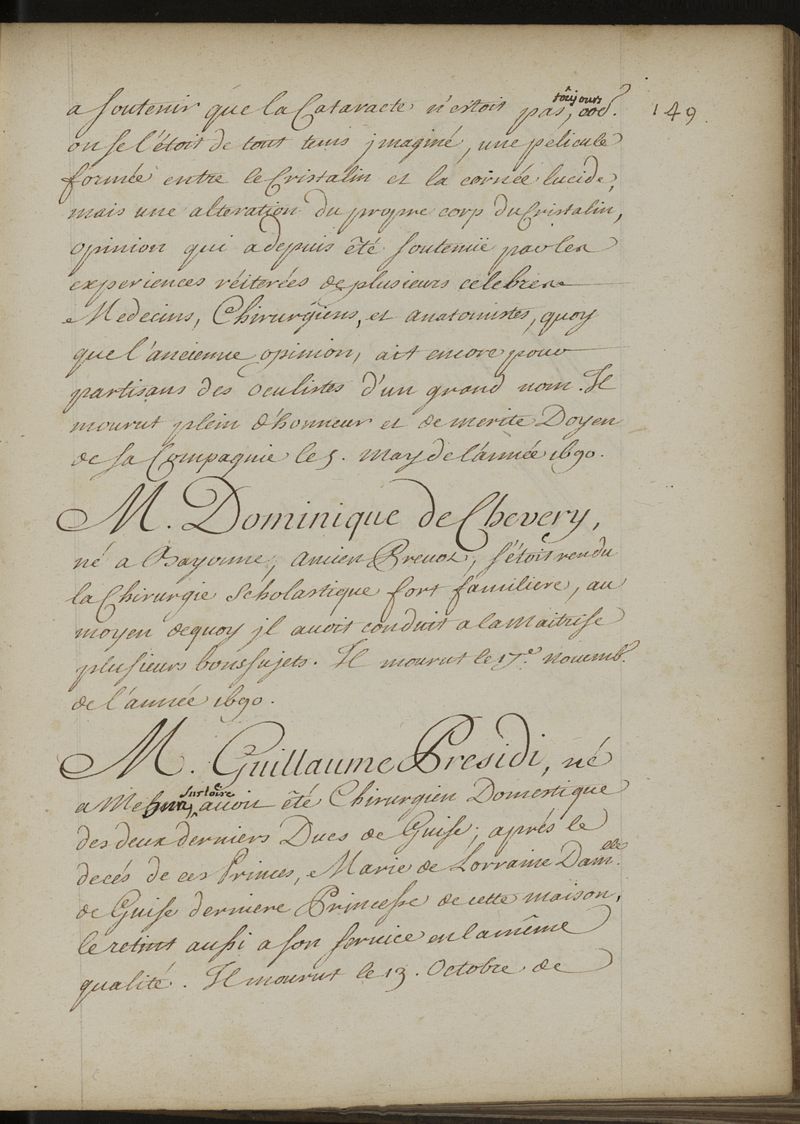 a soutenir que la Cataracte n'estoit pas, toujours
149.
on se l'étoit de tout tems jmaginé, une pélicule
formée entre le Cristalin et la cornée lucide,
mais une alteration du propre corp du Cristalin,
opinion qui a depuis été soutenüe par les
experiences réiterées de plusieurs celebres
Medecins, Chirurgiens, et anatomistes, quoy
que l'ancienne opinion, ait encore pour
partisans des oculistes d'un grand nom. Il
mourut plein d'honneur et de merite Doyen
de sa Compagnie le 5. may de l'année 1690.
M. Dominique de Chevery,
né a Bayonne, ancien Prevot, s'étoit rendu
la Chirurgie scholastique fort familiere, au
moyen dequoy jl avoit conduit a la Maitrise
plusieurs bons sujets. Il mourut le 17.e novemb.
de l'année 1690.
M. Guillaume Presidi, né
a Mehun, sur loire avoit été Chirurgien Domestique
des deux derniers Ducs de Guise; aprés le
decés de ces Princes, Marie de Lorraine Dam.elle
de Guise derniere Princesse de cette maison,
le retint aussi a son service en la même
qualité. Il mourut le 13. Octobre de